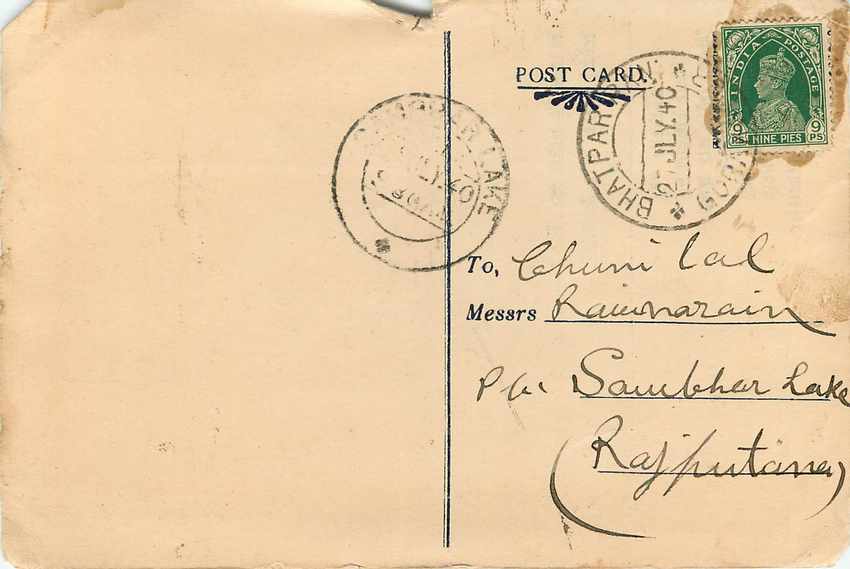 POST CARD.
INDIA POSTAGE
9 PS NINE PIES 9 PS
BHATPAR RANI
27 JLY.40
LAKE
LY.40
To, Chuni Lal
Messrs Ramnarain
P.O. Sambhar Lake
(Rajputana)